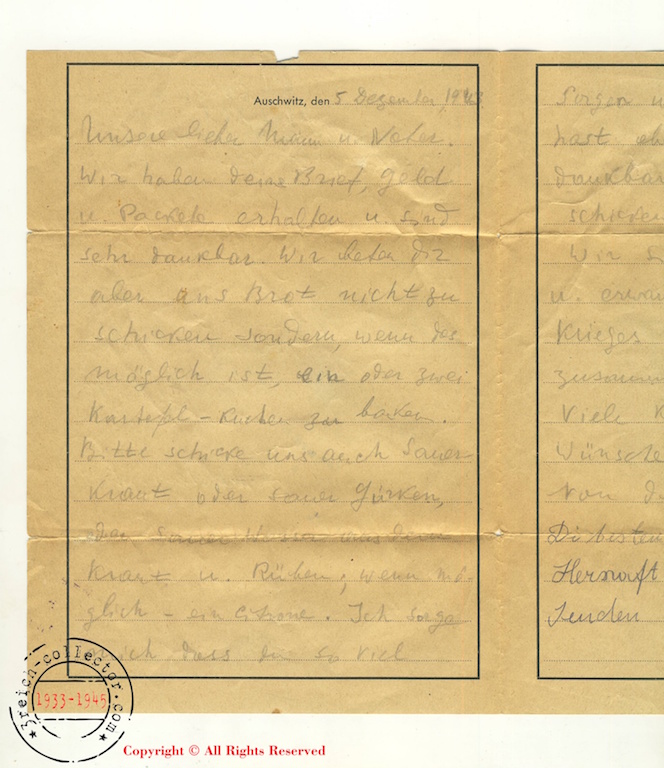 Auschwitz, den 5 Dezember 1943
Unsere lieber Mann u. Vater.
Wir haben deine Brief, Geld
u. Packete erhalten u. sind
sehr dankbar. Wir beten dir
aber uns Brot nicht zu
schicken sondern, wenn das
möglich ist, ein oder zwei
Kartofel-kuchen zu backen.
Bitte schicke uns auch Sauer
Kraut oder sauer Gürken,
das Sauer Wasser aus dem
Kraut u. Rüben, wenn mö-
glich - ein Citrone. Ich sorge
mich dass du so viel
Sorgen u
hast
dankbar
schicken
Wir
u.
Krieges
zusamm
Viele K
Wünsche
Von
Di besten
Herzaft
Senden
3reich-collector.com
1933-1945
Copyright © All Rights Reserved